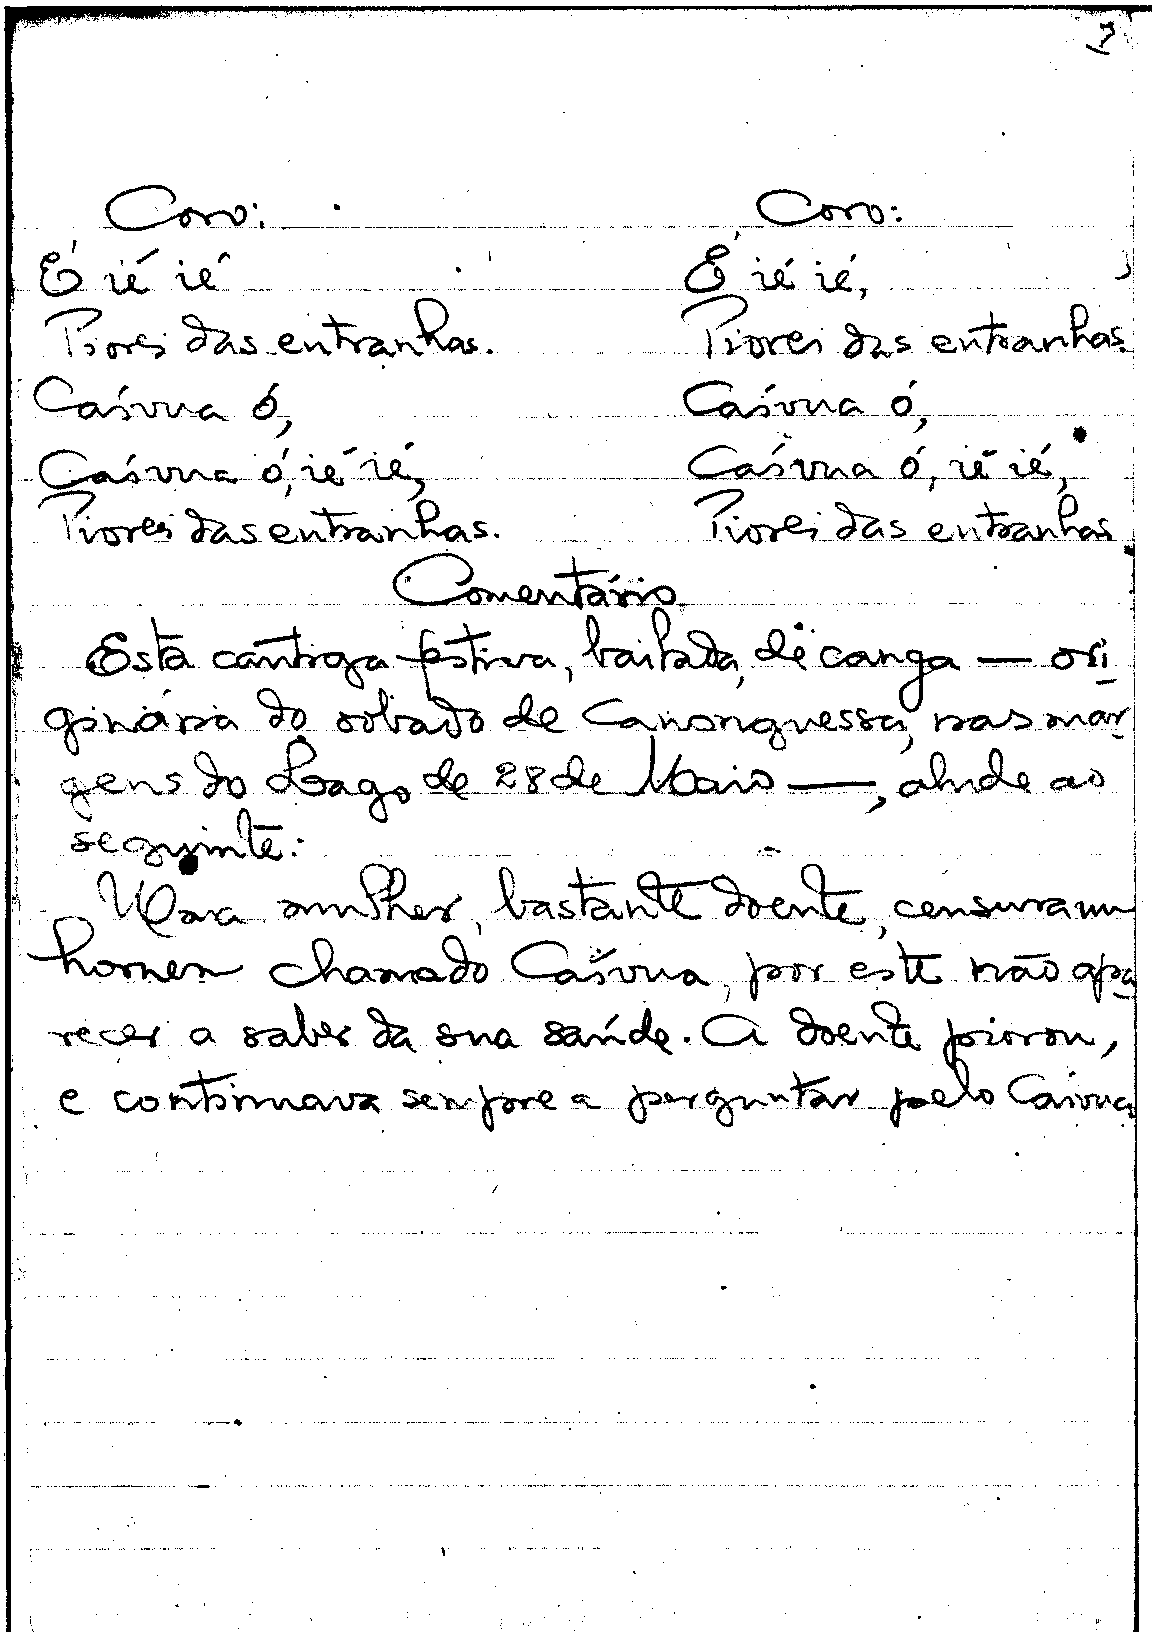 Coro:
É ié ié
Piorei das entranhas.
Caívua ó,
Caívua ó, ié ié,
Piorei das entranhas.
Coro:
É ié ié,
Piorei das entranhas.
Caívua ó,
Caívua ó, ié ié,
Piorei das entranhas
Comentário
Esta cantiga festiva, bailada, de canga — ori-
ginária do sobado de Canonguessa, nas mar-
gens do Lago de 28 de Maio —, alude ao
seguinte:
Uma mulher, bastante doente, censura um
homem chamado Caívua, por este não apa-
recer a saber da sua saúde. A doente piorou,
e continuava sempre a perguntar pelo Caívua